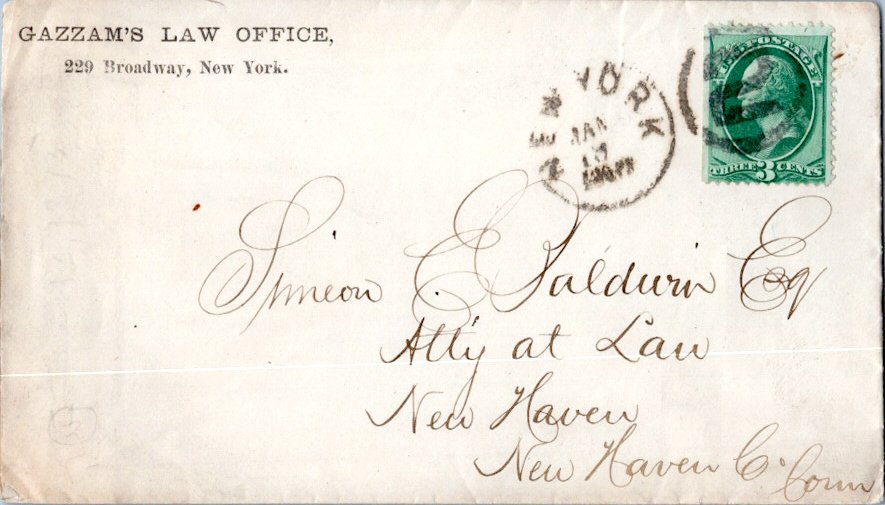 GAZZAM'S LAW OFFICE,
229 Broadway, New York.
NEW YORK
JAN
U.S. POSTAGE
THREE 3 CENTS
Simeon E. Baldwin Esq
Atty at Law
New Haven
New Haven C. Conn